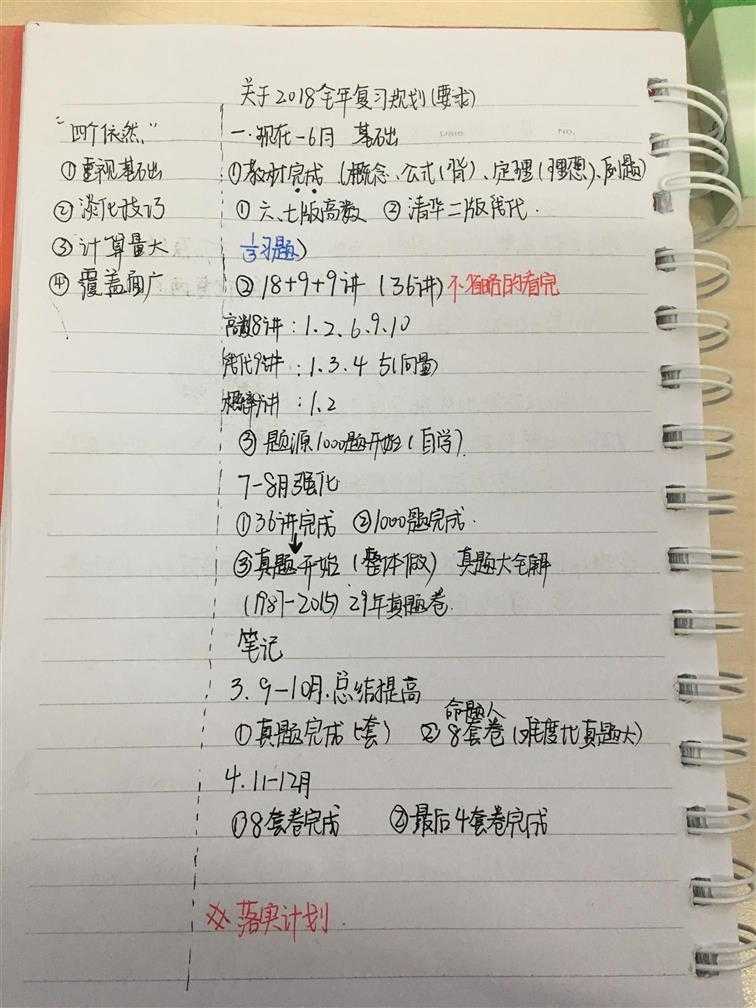 关于2018全年复习规划(要求)
"四个依然"
①重视基础
②淡化技巧
③计算量大
④覆盖面广
一.现在-6月 基础
①教材完成(概念、公式(背)、定理(理想)、例题)
①六、七版高数 ②清华二版线代.
1/3习题)
②18+9+9讲(36讲)不省略的看完
高数18讲:1.2、6.9.10
线代9讲:1.3.4 5(向量)
概率9讲:1.2
③题源1000题开始(自学)
7-8月强化
①36讲完成 ②1000题完成.
③真题开始(整体做) 真题大全解
(1987-2015)29年真题卷.
笔记
3.9-10月.总结提高
命题人
①真题完成(套) ②8套卷(难度比真题大)
4.11-12月
①8套卷完成 ②最后4套卷完成
※落实计划.